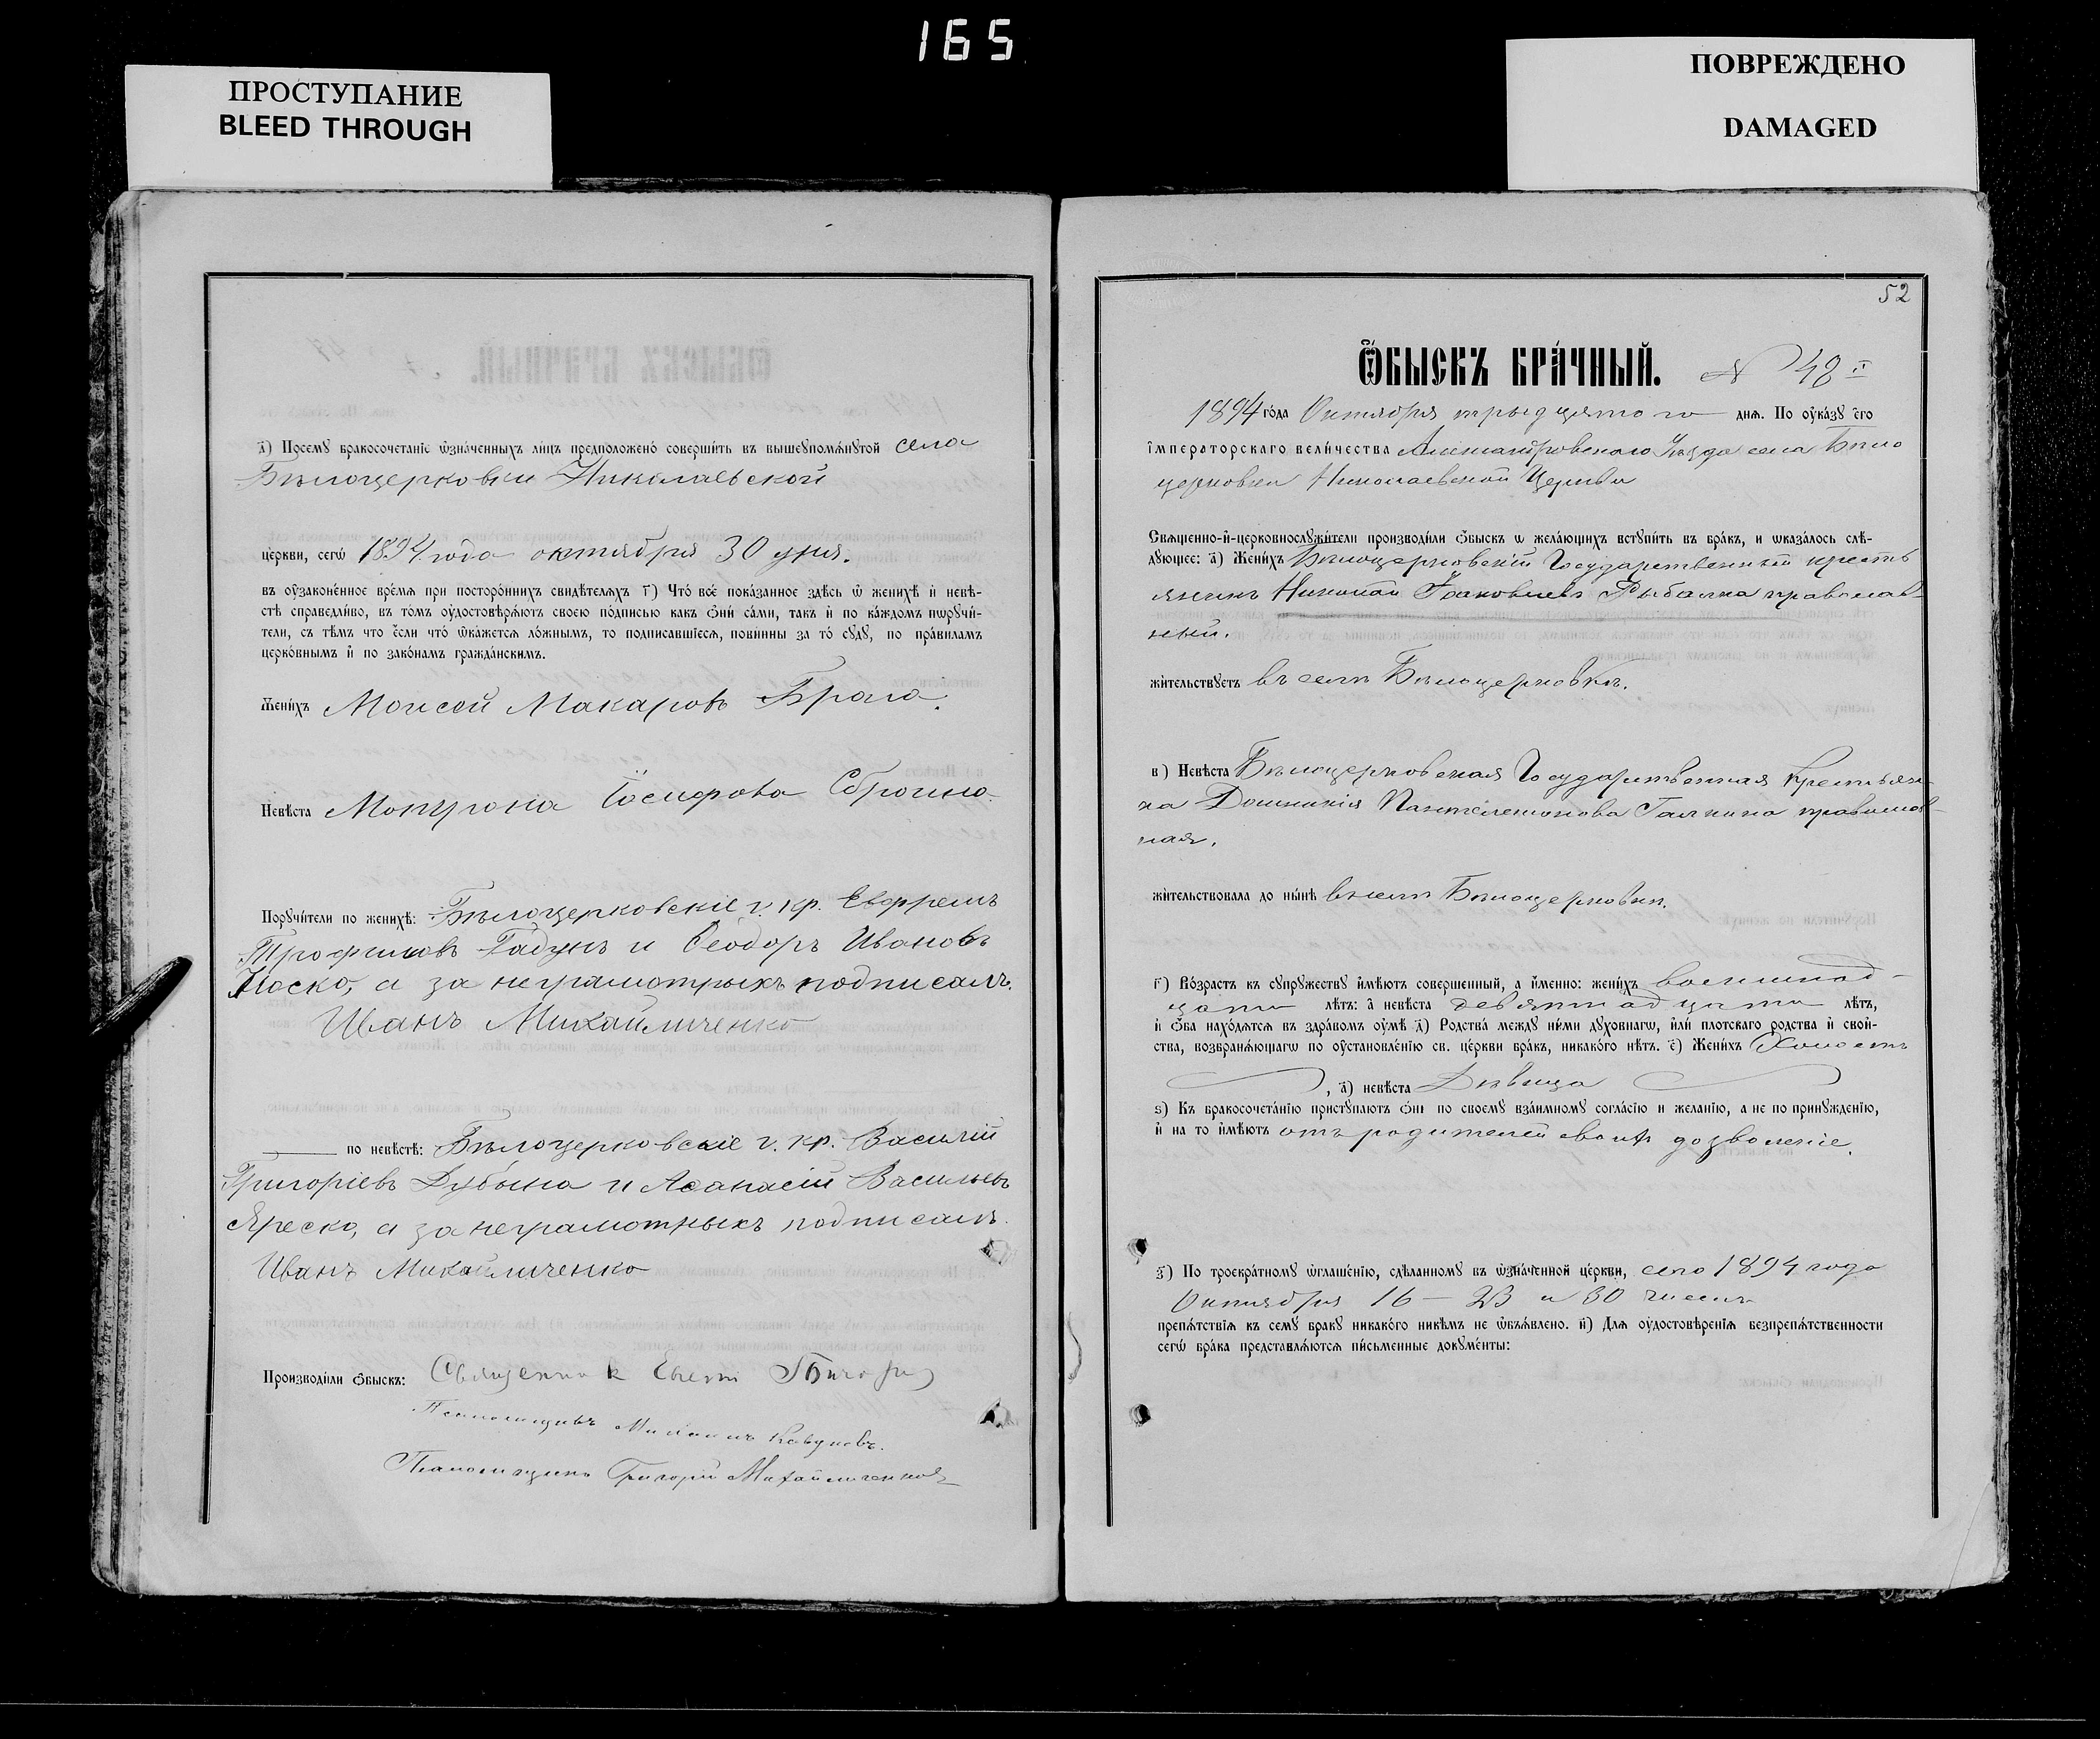 165
ПРОСТУПАНИЕ
BLEED THROUGH
ПОВРЕЖДЕНО
DAMAGED
д҃) Посемꙋ бракосочетаніе ѡзначенныхъ лицъ предположено совершить въ вышеꙋпомѧнꙋтой села
Бѣлоцерковки Николаевской
церкви, сегѡ 1894 года октября 30 дня.
въ оуказаконенное время при постороннихъ свидѣтеляхъ г҃) Что все показанное здѣсь ѡ женихѣ и невѣ-
стѣ справедливо, въ томъ оудостовѣряютъ своею подписью какъ ѻни сами, такъ и по каждомъ порꙋчи-
тели, съ тѣмъ что если что ѡкажетсѧ ложнымъ, то подписавшіесѧ, повинны за то сꙋдꙋ, по правиламъ
церковнымъ и по законамъ гражданскимъ.
Женихъ Моисей Макаровъ Брага.
Невѣста Іосифова
Порꙋчители по женихѣ: Бѣлоцерковскіе г. кр. Евфремъ
Трофимовъ Гадунъ и Ѳеодоръ Ивановъ
Носко, а за неграмотныхъ подписалъ
Иванъ Михайличенко
по невѣстѣ: Бѣлоцерковскіе г. кр. Василій
Григоріевъ Дубына и Аѳанасій Васильевъ
Яреско, а за неграмотныхъ подписалъ
Иванъ Михайличенко
Производили ѻбыскъ: Священник
Псаломщикъ
Псаломщикъ Григорій Михайличенко
52
Ѻбыскъ брачный. № 48
1894 года Октября тридцятого днѧ. По оуказꙋ его
императорскаго величества Александровскаго Уезда села Бѣло
церковки Николаевской Церкви
Свѧщенно-и-церковнослꙋжители производили ѻбыскъ ѡ желающихъ встꙋпить въ бракъ, и ѡказалось слѣ-
дꙋющее: а҃) Женихъ Бѣлоцерковскій Государственный кресть
янинъ Николай Іаковлевъ Рыбалка православ-
ный.
жительствꙋетъ въ селѣ Бѣлоцерковкѣ.
в҃) Невѣста Бѣлоцерковская Государственная Крестьян-
ка Домникія Пантелеимонова Галкина православ-
ная.
жительствовала до нынѣ въ селѣ Бѣлоцерковки.
г҃) Возрастъ къ сꙋпрꙋжествꙋ имѣютъ совершенный, а именно: женихъ восемнад-
цати лѣтъ: а невѣста девятнадцати лѣтъ,
и ѻба находѧтсѧ въ здравомъ оумѣ д҃) Родства междꙋ ними дꙋховнагѡ, или плотскаго родства и свой-
ства, возбранѧющагѡ по оустановленію св. церкви бракъ, никакого нѣтъ. е҃) Женихъ Холостъ
, а҃) невѣста Дѣвица
ѕ҃) Къ бракосочетанію пристꙋпаютъ ѻни по своемꙋ взаимномꙋ согласію и желанію, а не по принꙋжденію,
и на то имѣютъ отъ родителей своихъ дозволеніе.
з҃) По троекратномꙋ ѡглашенію, сдѣланномꙋ въ ѡзначенной церкви, сего 1894 года
Октября 16 – 23 и 30 чиселъ
препятствія къ семꙋ бракꙋ никакого никѣмъ не ѡбъявлено. и҃) Для оудостовѣренія безпрепятственности
сегѡ брака представлѧютсѧ письменные докꙋменты: